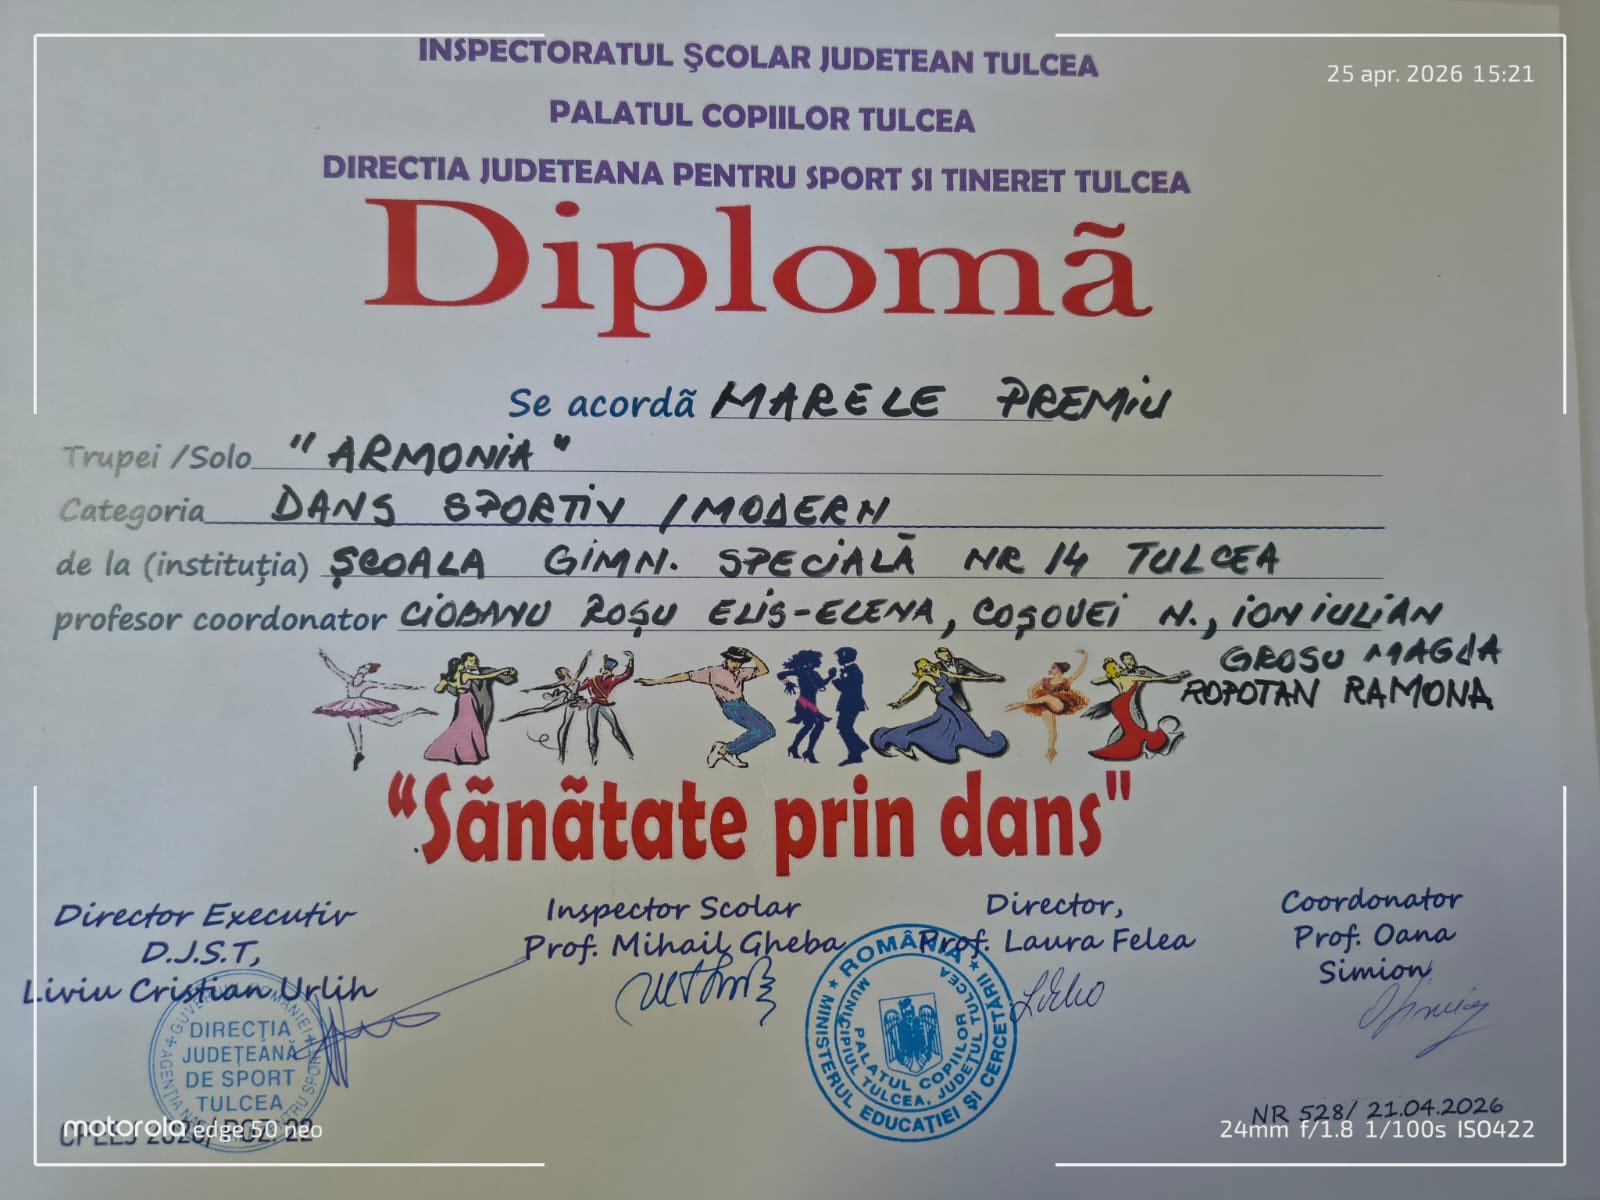 INSPECTORATUL ŞCOLAR JUDETEAN TULCEA
25 apr. 2026 15:21
PALATUL COPIILOR TULCEA
DIRECTIA JUDETEANA PENTRU SPORT SI TINERET TULCEA
Diplomã
Se acordã MARELE PREMIU
Trupei /Solo "ARMONIA"
Categoria DANS SPORTIV /MODERN
de la (instituţia) ŞCOALA GIMN. SPECIALĂ NR 14 TULCEA
profesor coordonator CIOBANU ROŞU ELIS-ELENA, COŞOVEI N., ION IULIAN
GROSU MAGDA
ROPOTAN RAMONA
“Sãnãtate prin dans"
Director Executiv
D.J.S.T,
Liviu Cristian Urlih
Inspector Scolar
Prof. Mihail Gheba
Director,
Prof. Laura Felea
Coordonator
Prof. Oana
Simion
GUVERNUL ROMÂNIEI
AGENŢIA PENTRU SPORT
DIRECŢIA
JUDEŢEANĂ
DE SPORT
TULCEA
★ ROMÂNIA ★
MINISTERUL EDUCAŢIEI ŞI CERCETĂRII
MUNICIPIUL TULCEA, JUDEŢUL TULCEA
PALATUL COPIILOR
TULCEA
NR 528/ 21.04.2026
2026/ POZ. 22
motorola edge 50 neo
24mm f/1.8 1/100s ISO422